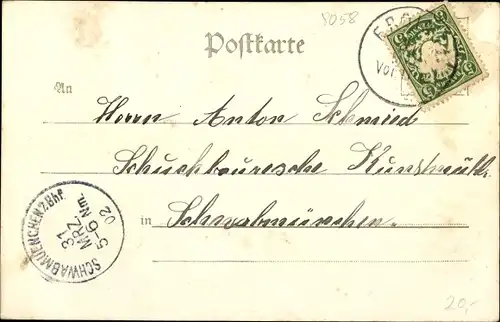 5058
Postkarte
An
Herrn Anton Schmied
Schuchbaurische Kunstmühl
in Schwabmünchen.
SCHWABMUENCHEN 2. Bhf.
31
MRZ
5-6 Nm.
02
20,-